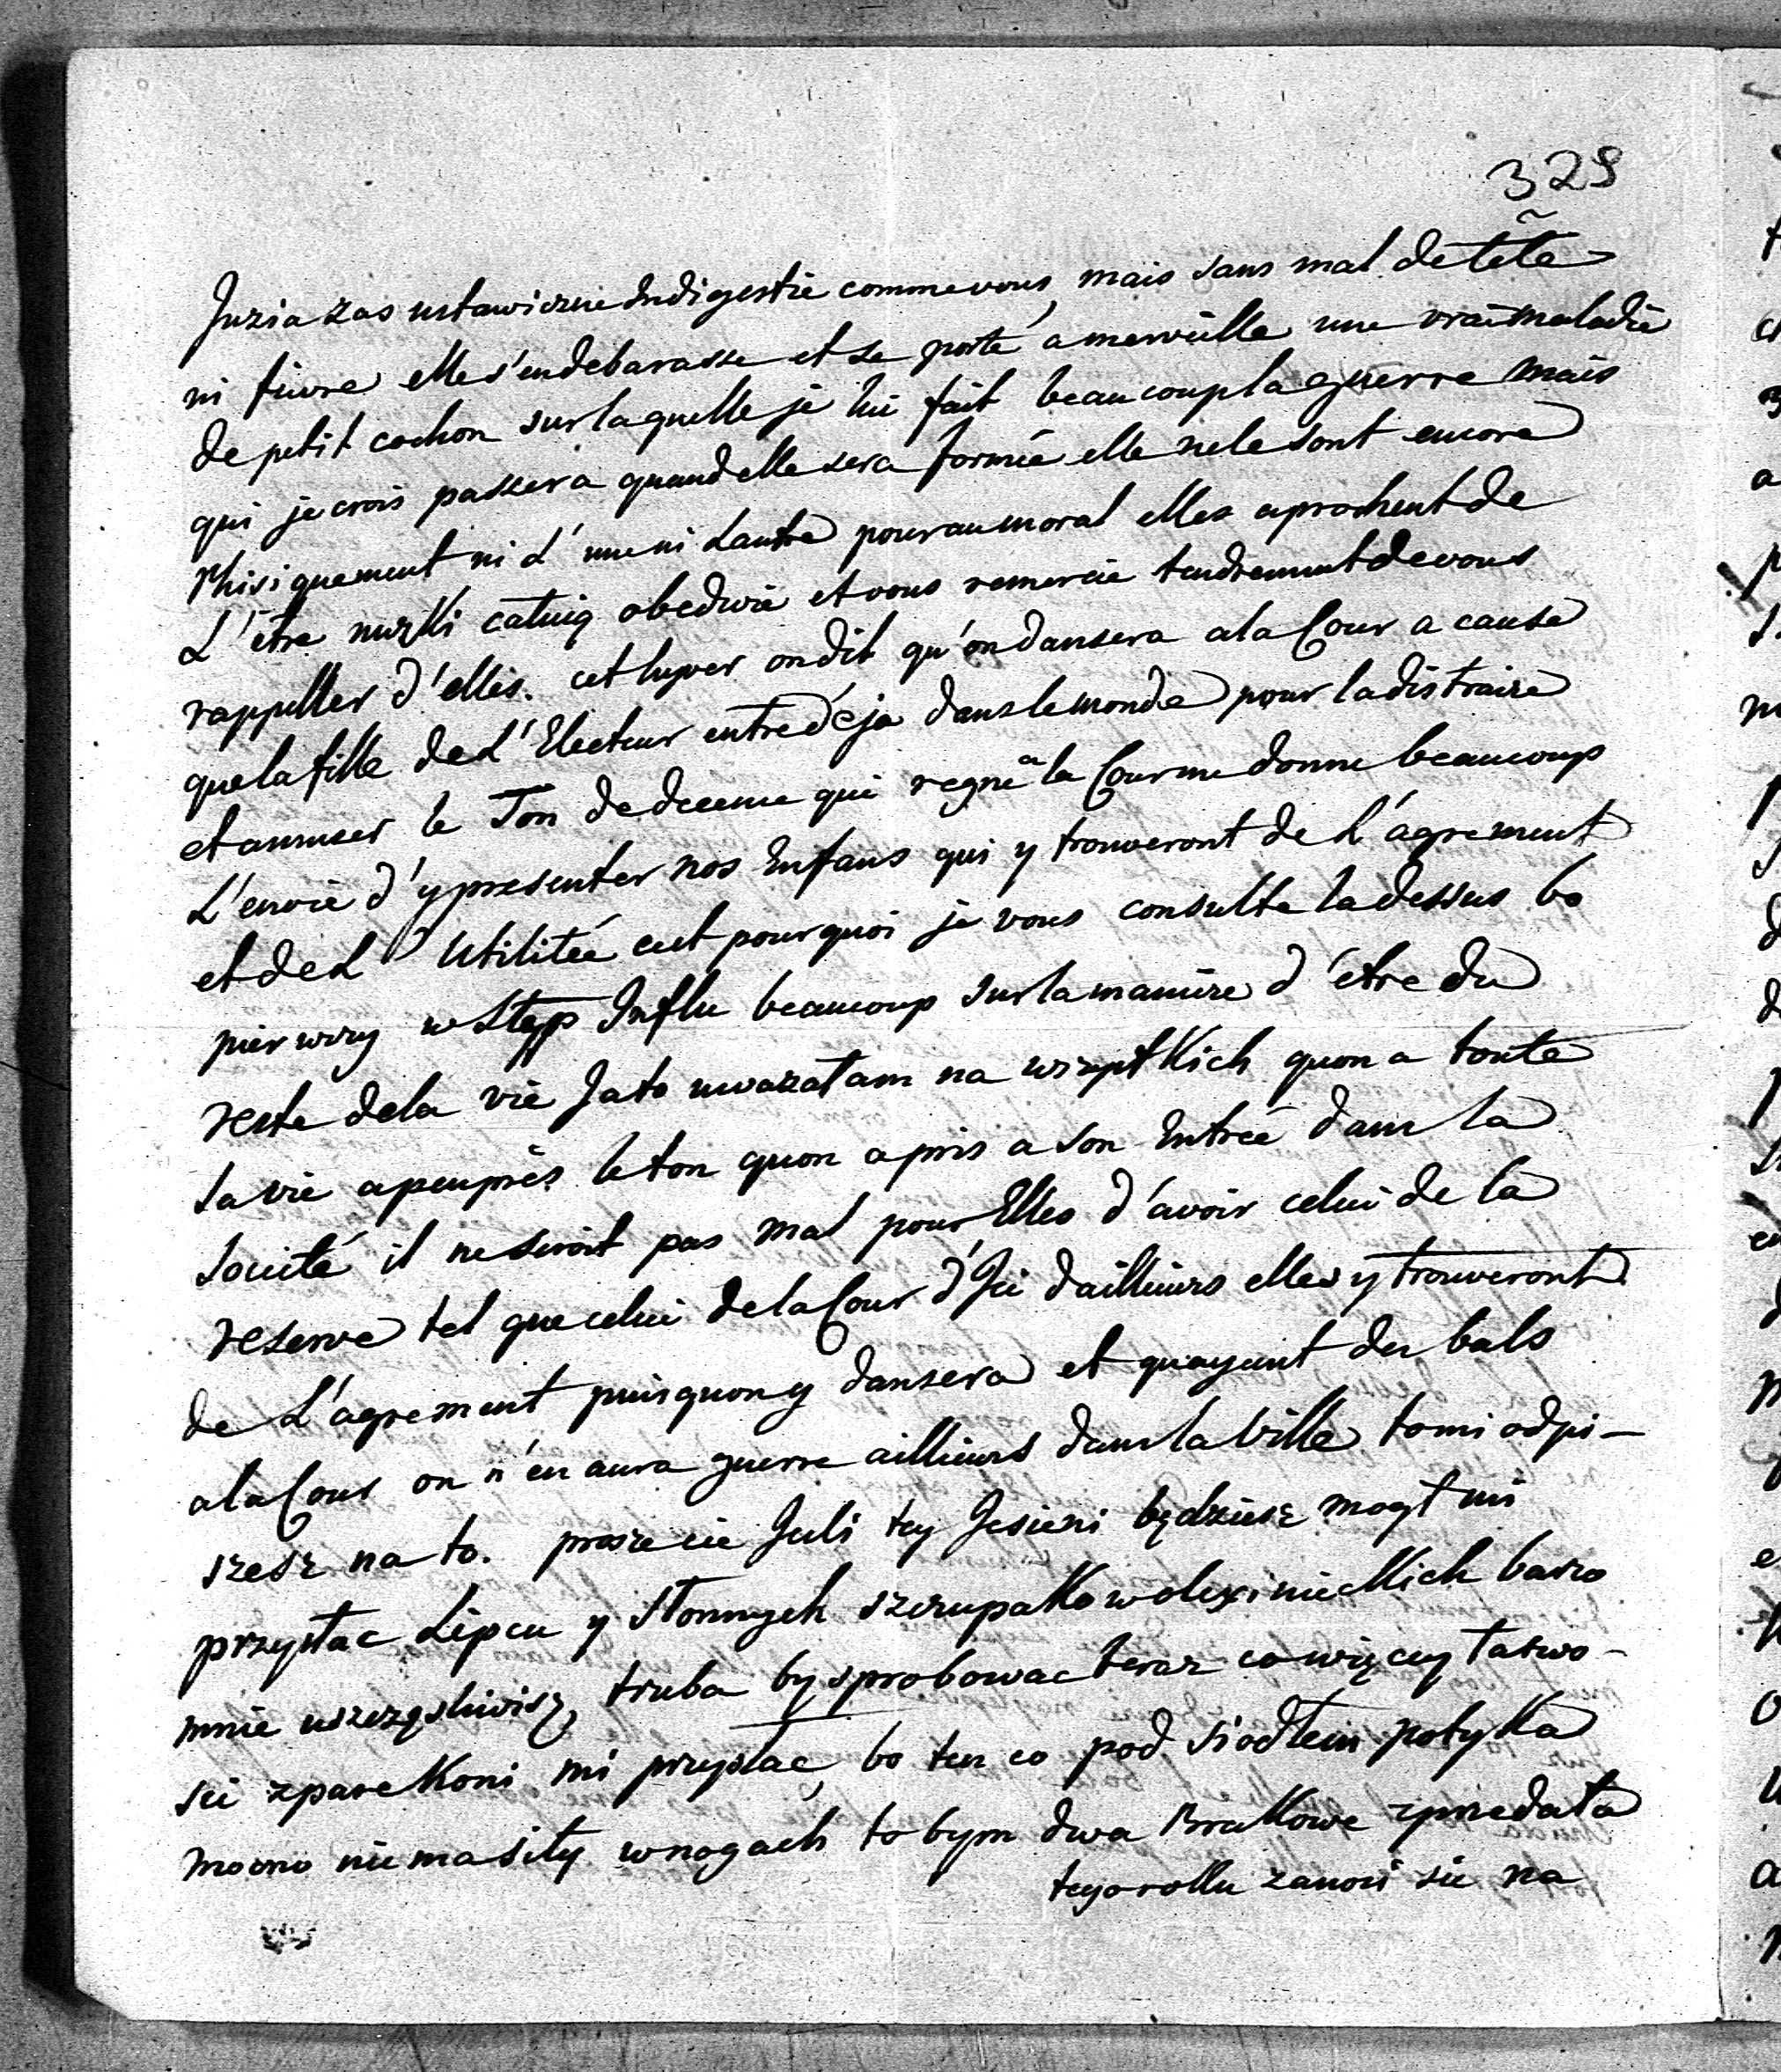 329
Juzia zas ustawicznie Indigestie comme vous, mais sans mal de tete
ni fievre elle s'en debarasse et se porte a merveille une vraie maladie
de petit cochon sur laquelle je lui fait beaucoup la guerre mais
qui je crois passera quand elle sera formée elle ne le sont encore
Phisiquement ni L'une ni Lautre pour au moral elles aprochent de
L'être nuzki catuią obedwie et vous remercie tendrement de vous
rappeller d'elles. cet hyver on dit qu'on dansera a la Cour a cause
que la fille de L'Electeur entre déja dans le monde pour la distraire
et amuser le Ton de decence qui regne a la Cour me donne beaucoup
L'envie d'y presenter nos Enfans qui y trouveront de L'agrement
et de L'Utilitée cest pourquoi je vous consulte la dessus bo
pierwszy wstęp Influe beaucoup sur la manière d'être du
reste de la vie Ja to uwazałam na wszystkich quon a toute
sa vie apeuprès le ton quon a pris a son Entrée dans la
societé il ne seroit pas mal pour Elles d'avoir celui de la
reserve tel que celui de la Cour d'Ici d'ailleurs elles y trouveront
de L'agrement puisquon y dansera et quayant des bals
a la Cour on n'en aura guerre ailleurs dans la Ville to mi odpi-
szesz na to. prosze cie Jesli tey Jesieni będziesz mogł mi
przysłac Lipcu y Słonnych szczupakow olexinieckich barzo
mnie uszczęsliwisz, trzeba by sprobowac teraz co więcey tarwo-
sci z pare koni mi przysłac, bo ten co pod siodłem potyka
mocno nie ma siły w nogach to bym dwa Brakowe zprzedała
tego roku zanosi sie na